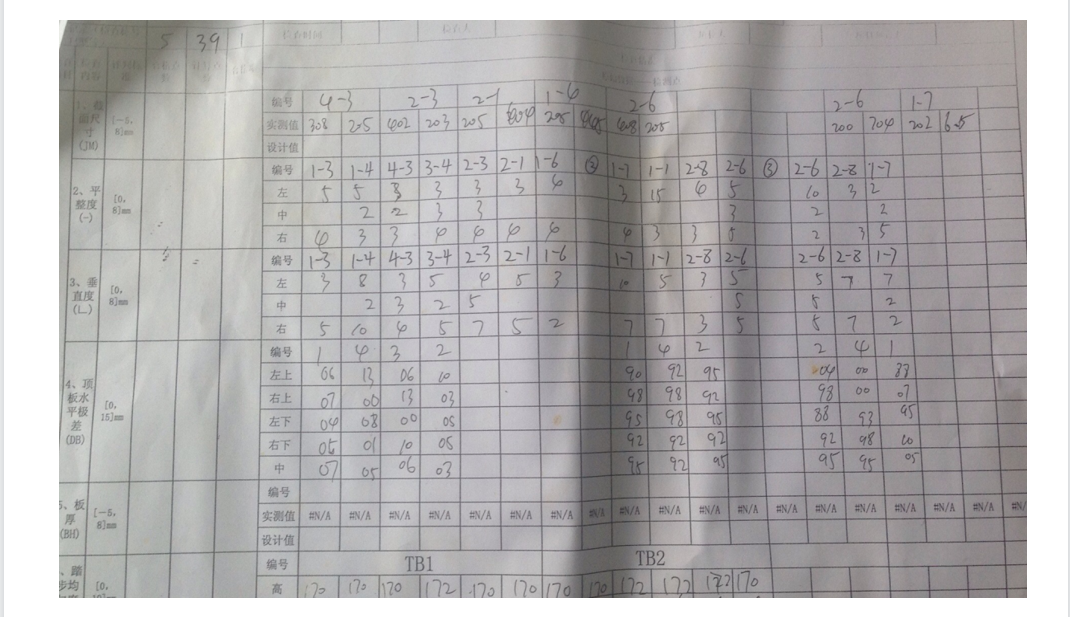 5 39 1
编号 4-3 2-3 2-1 1-6 2-6 2-6 1-7
1、截面尺寸(JM) [-5,8]mm 实测值 308 205 602 203 205 604 205 608 205 200 704 202
设计值
编号 1-3 1-4 4-3 3-4 2-3 2-1 1-6 ② 1-7 1-1 2-8 2-6 ③ 2-6 2-8 1-7
2、平整度(-) [0,8]mm 左 5 5 3 3 3 3 6 3 15 6 5 10 3 2
中 2 2 3 3 3 2 2
右 4 3 3 4 4 4 4 4 3 3 5 2 3 5
编号 1-3 1-4 4-3 3-4 2-3 2-1 1-6 1-7 1-1 2-8 2-6 2-6 2-8 1-7
3、垂直度(L) [0,8]mm 左 3 8 3 5 4 5 3 10 5 3 5 5 7 7
中 2 3 2 5 5 5 2
右 5 10 4 5 7 5 2 7 7 3 5 5 7 2
编号 1 4 3 2 1 4 2 2 4 1
4、顶板水平极差(DB) [0,15]mm 左上 06 13 06 10 90 92 95 04 00 83
右上 07 00 13 03 98 98 92 98 00 07
左下 04 08 00 05 95 98 95 88 93 95
右下 05 01 10 05 92 92 92 92 98 10
中 07 05 06 03 95 92 95 95 95 05
编号
5、板厚(BH) [-5,8]mm 实测值 #N/A #N/A #N/A #N/A #N/A #N/A #N/A #N/A #N/A #N/A #N/A #N/A #N/A #N/A #N/A #N/A #N/A #N/A
设计值
编号 TB1 TB2
踏步均 [0, 高 170 170 170 172 170 170 170 170 172 172 172 170